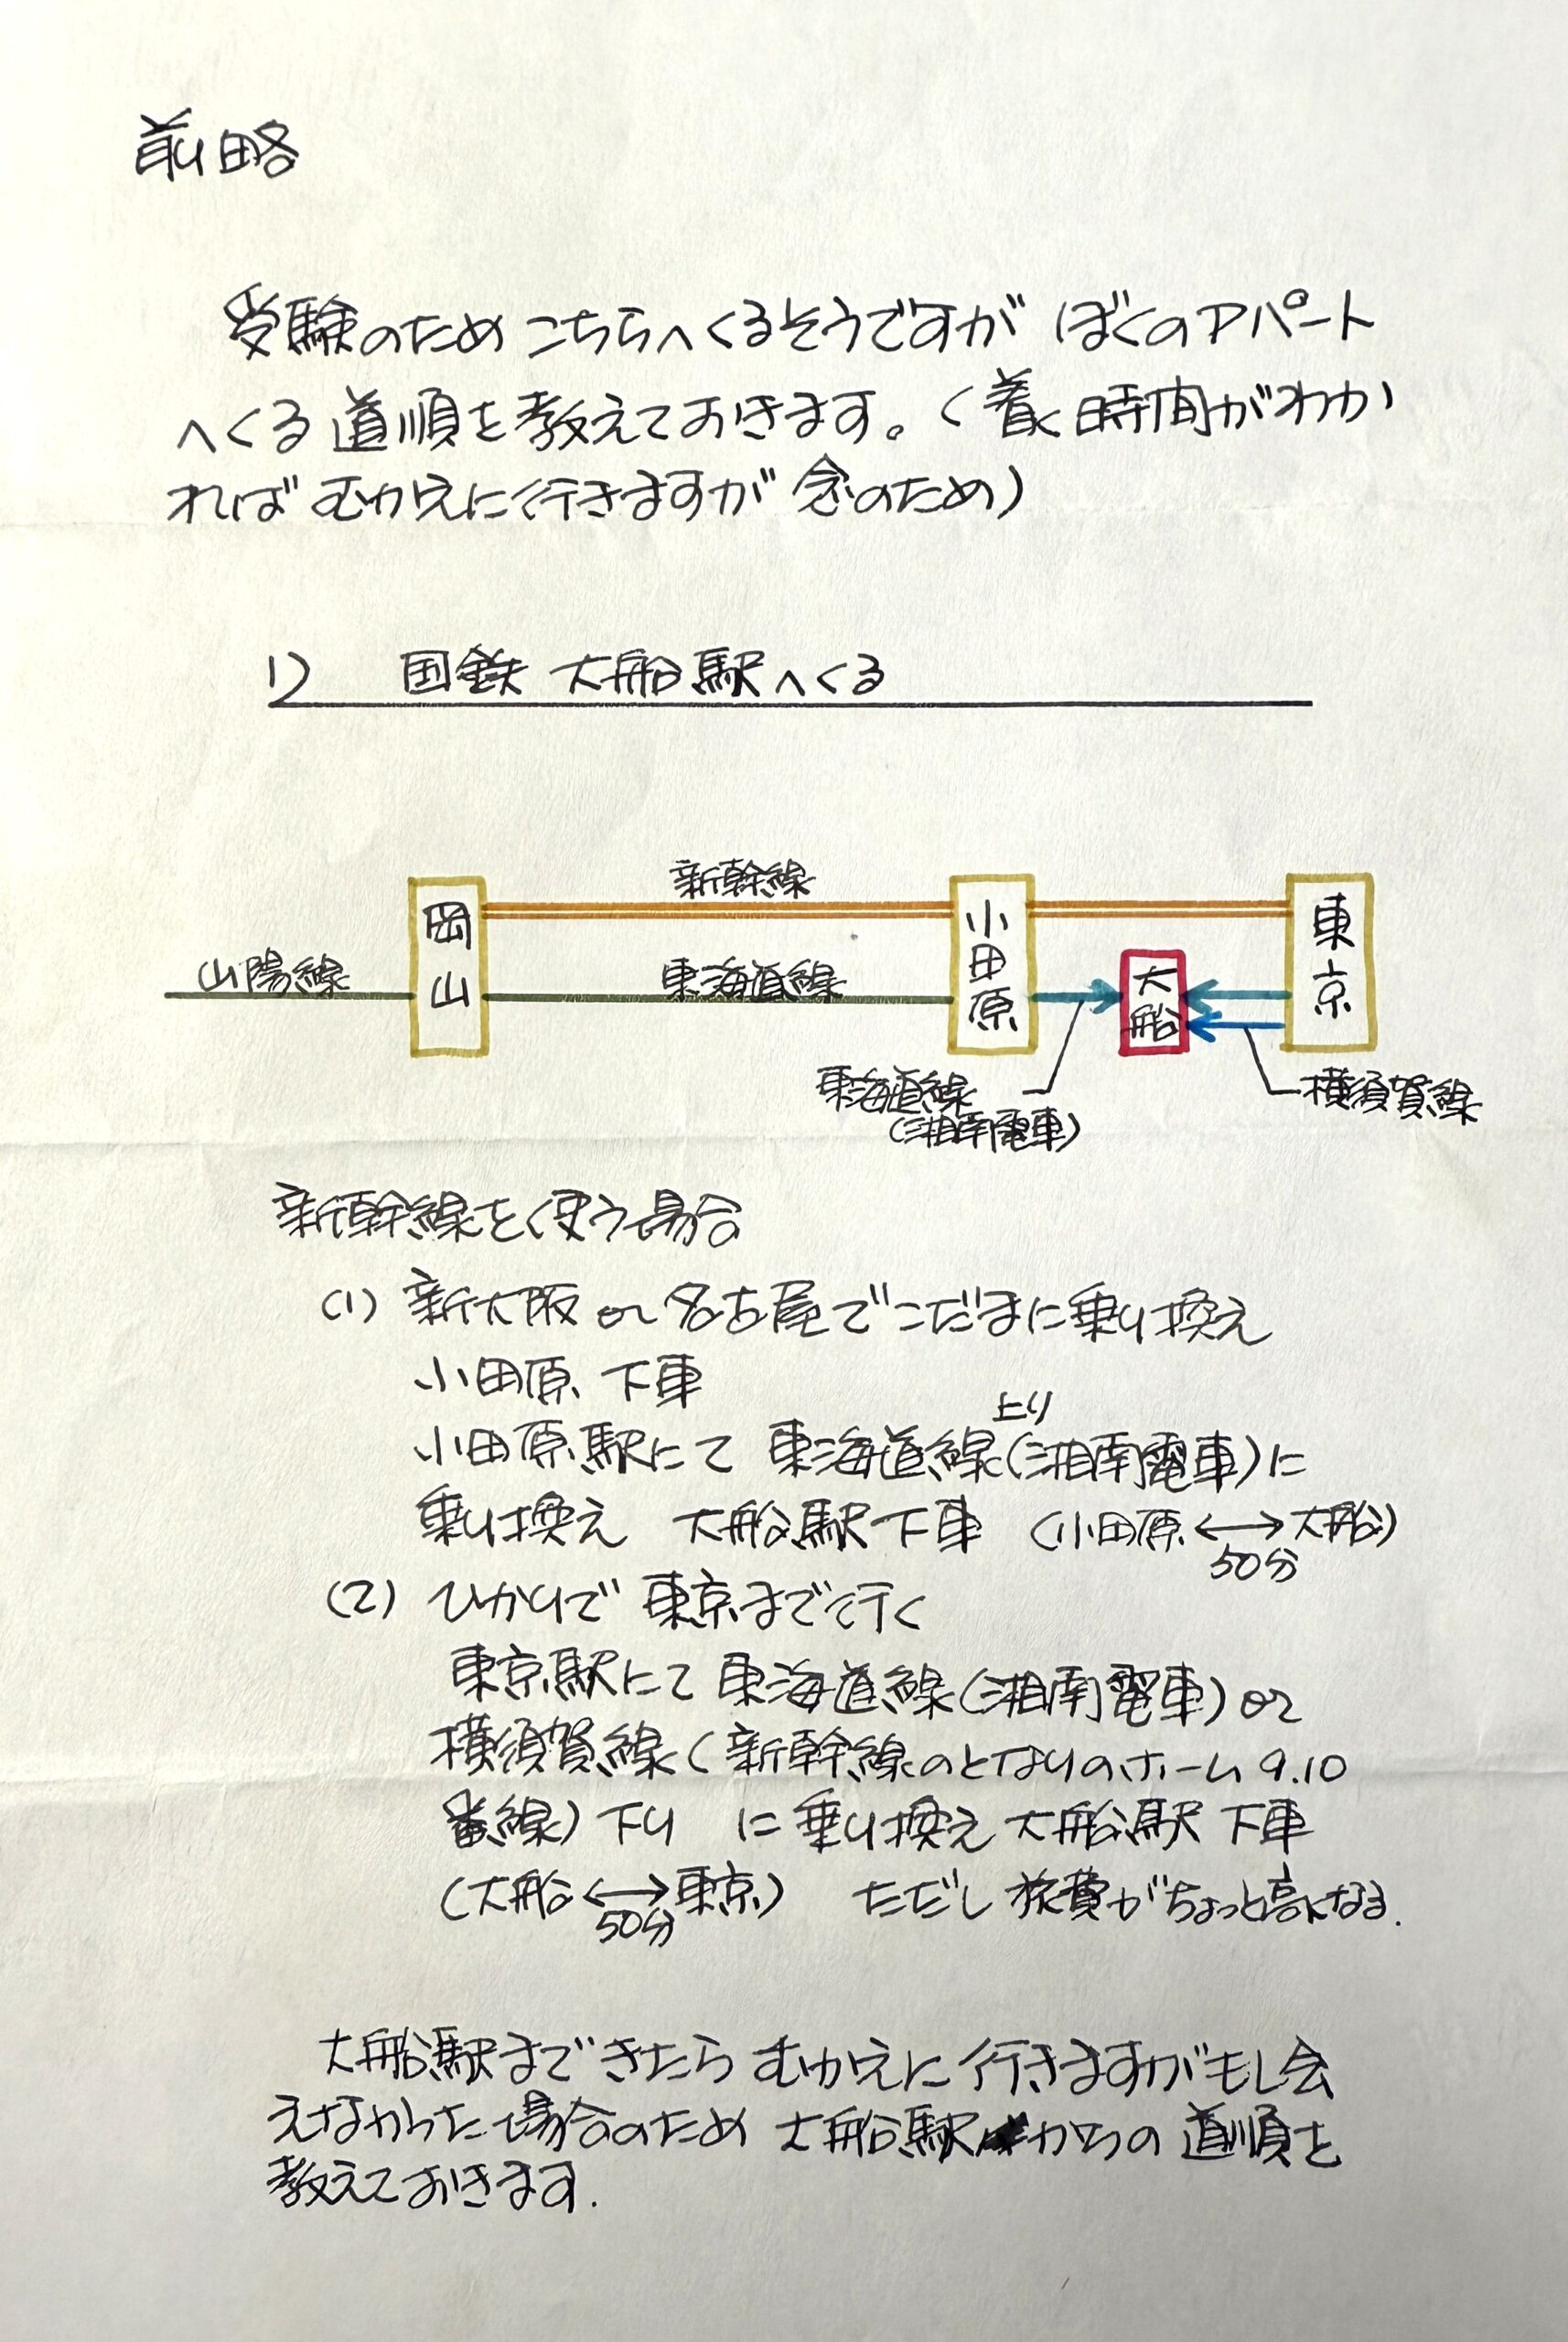 前略
受験のためこちらへくるそうですが ぼくのアパート
へくる道順を教えておきます。(着く時間がわか
ればむかえに行きますが 念のため)
1) 国鉄 大船駅へくる
新幹線
岡山
小田原
東京
山陽線
東海道線
大船
東海道線
(湘南電車)
横須賀線
新幹線を使う場合
(1) 新大阪 or 名古屋でこだまに乗り換え
小田原 下車
上り
小田原駅にて 東海道線(湘南電車)に
乗り換え 大船駅下車 (小田原↔大船)
50分
(2) ひかりで 東京まで行く
東京駅にて 東海道線(湘南電車) or
横須賀線(新幹線のとなりのホーム 9.10
番線)下り に乗り換え 大船駅 下車
(大船↔東京) ただし 旅費がちょっと高くなる.
50分
大船駅まできたら むかえに行きますがもし会
えなかった場合のため 大船駅からの道順を
教えておきます.